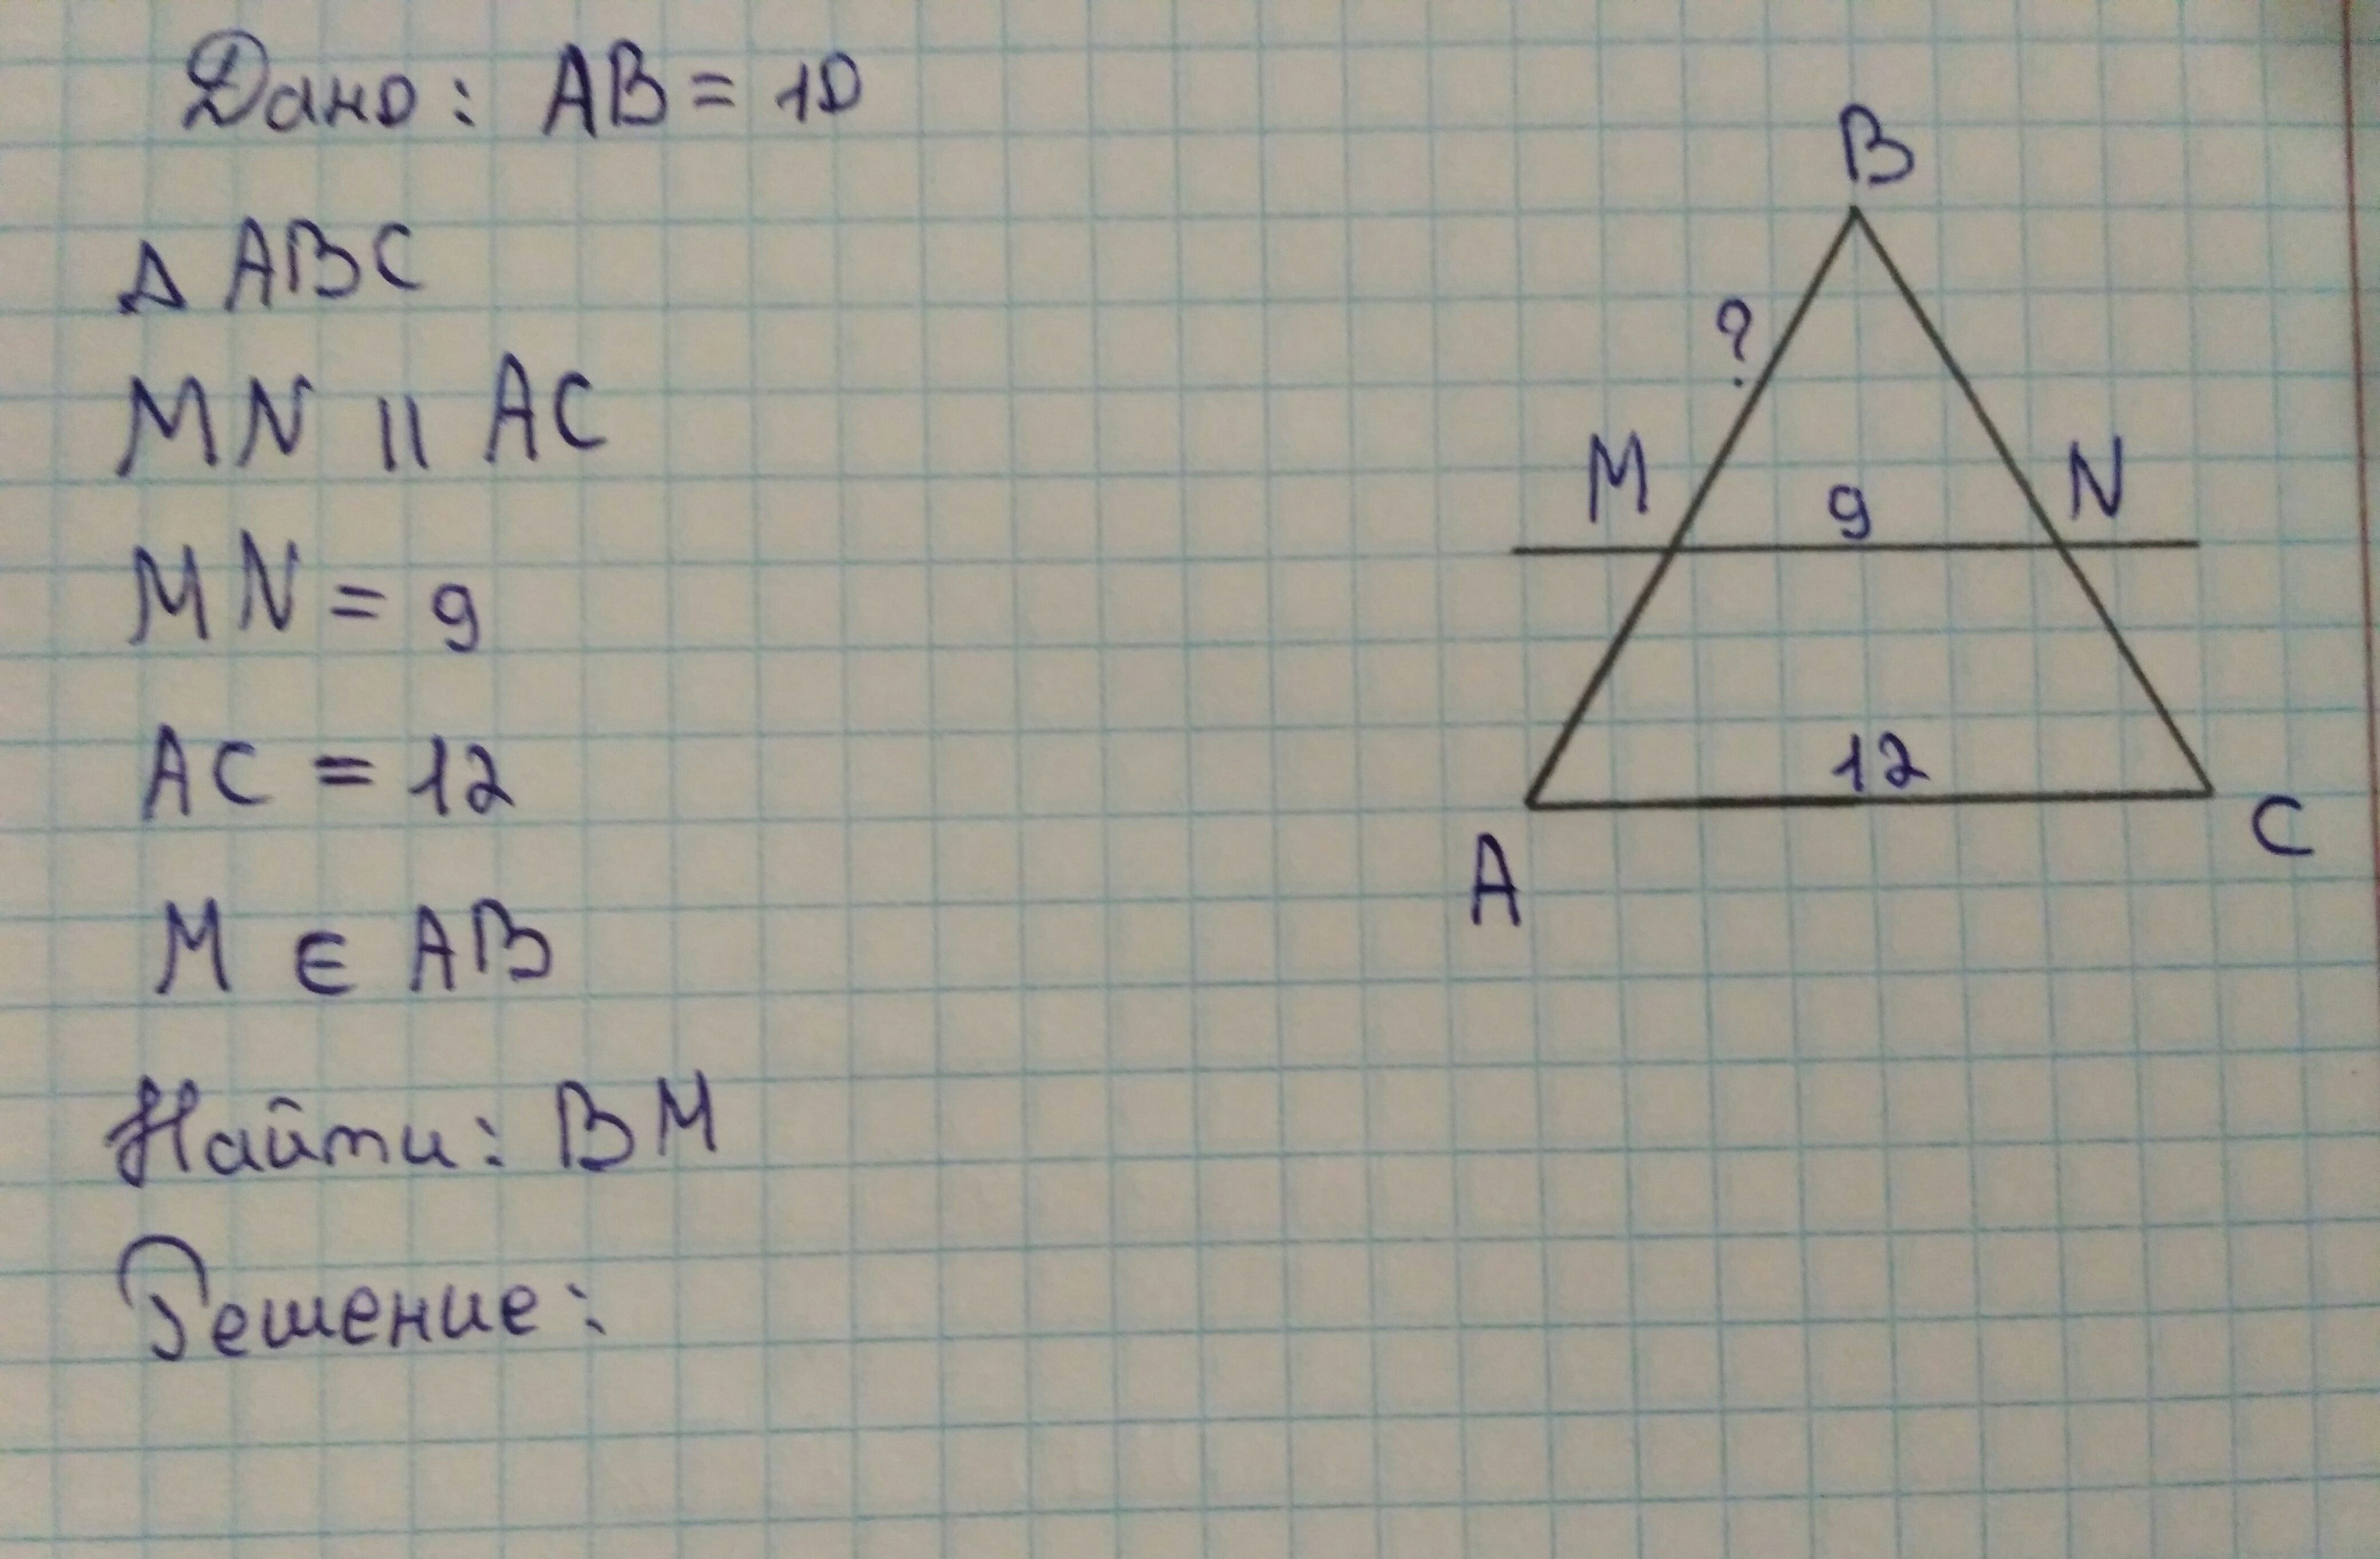 Дано: AB = 10
Δ ABC
MN || AC
MN = 9
AC = 12
M ∈ AB
Найти: BM
Решение:
B
?
M 9 N
12
A C